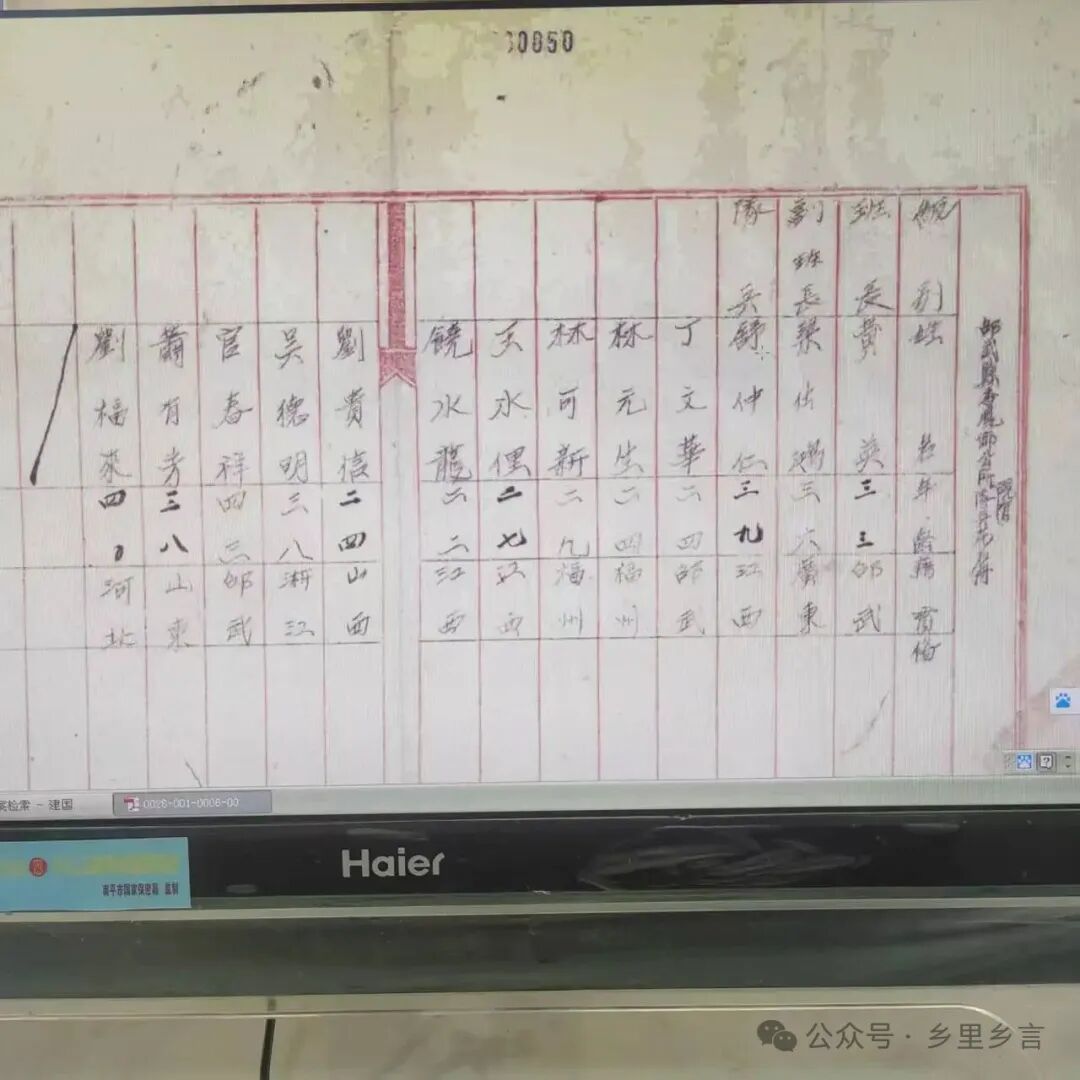 30050
級別 姓名 年齡 籍貫 備
班長 黄英 三三 邵武
副班長 梁仕鴻 三六 廣東
隊兵 舒仲仁 三九 江西
丁文華 二四 邵武
林元生 二四 福州
林可新 二九 福州
王水俚 二七 江西
饒水龍 二二 江西
劉貴信 二四 山西
吴德明 三八 浙江
官春祥 四二 邵武
蕭有芳 三八 山東
劉福來 四〇 河北
案检索 - 建国
0028-001-0006-00
Haier
南平市国家保密局 监制
公众号 · 乡里乡言